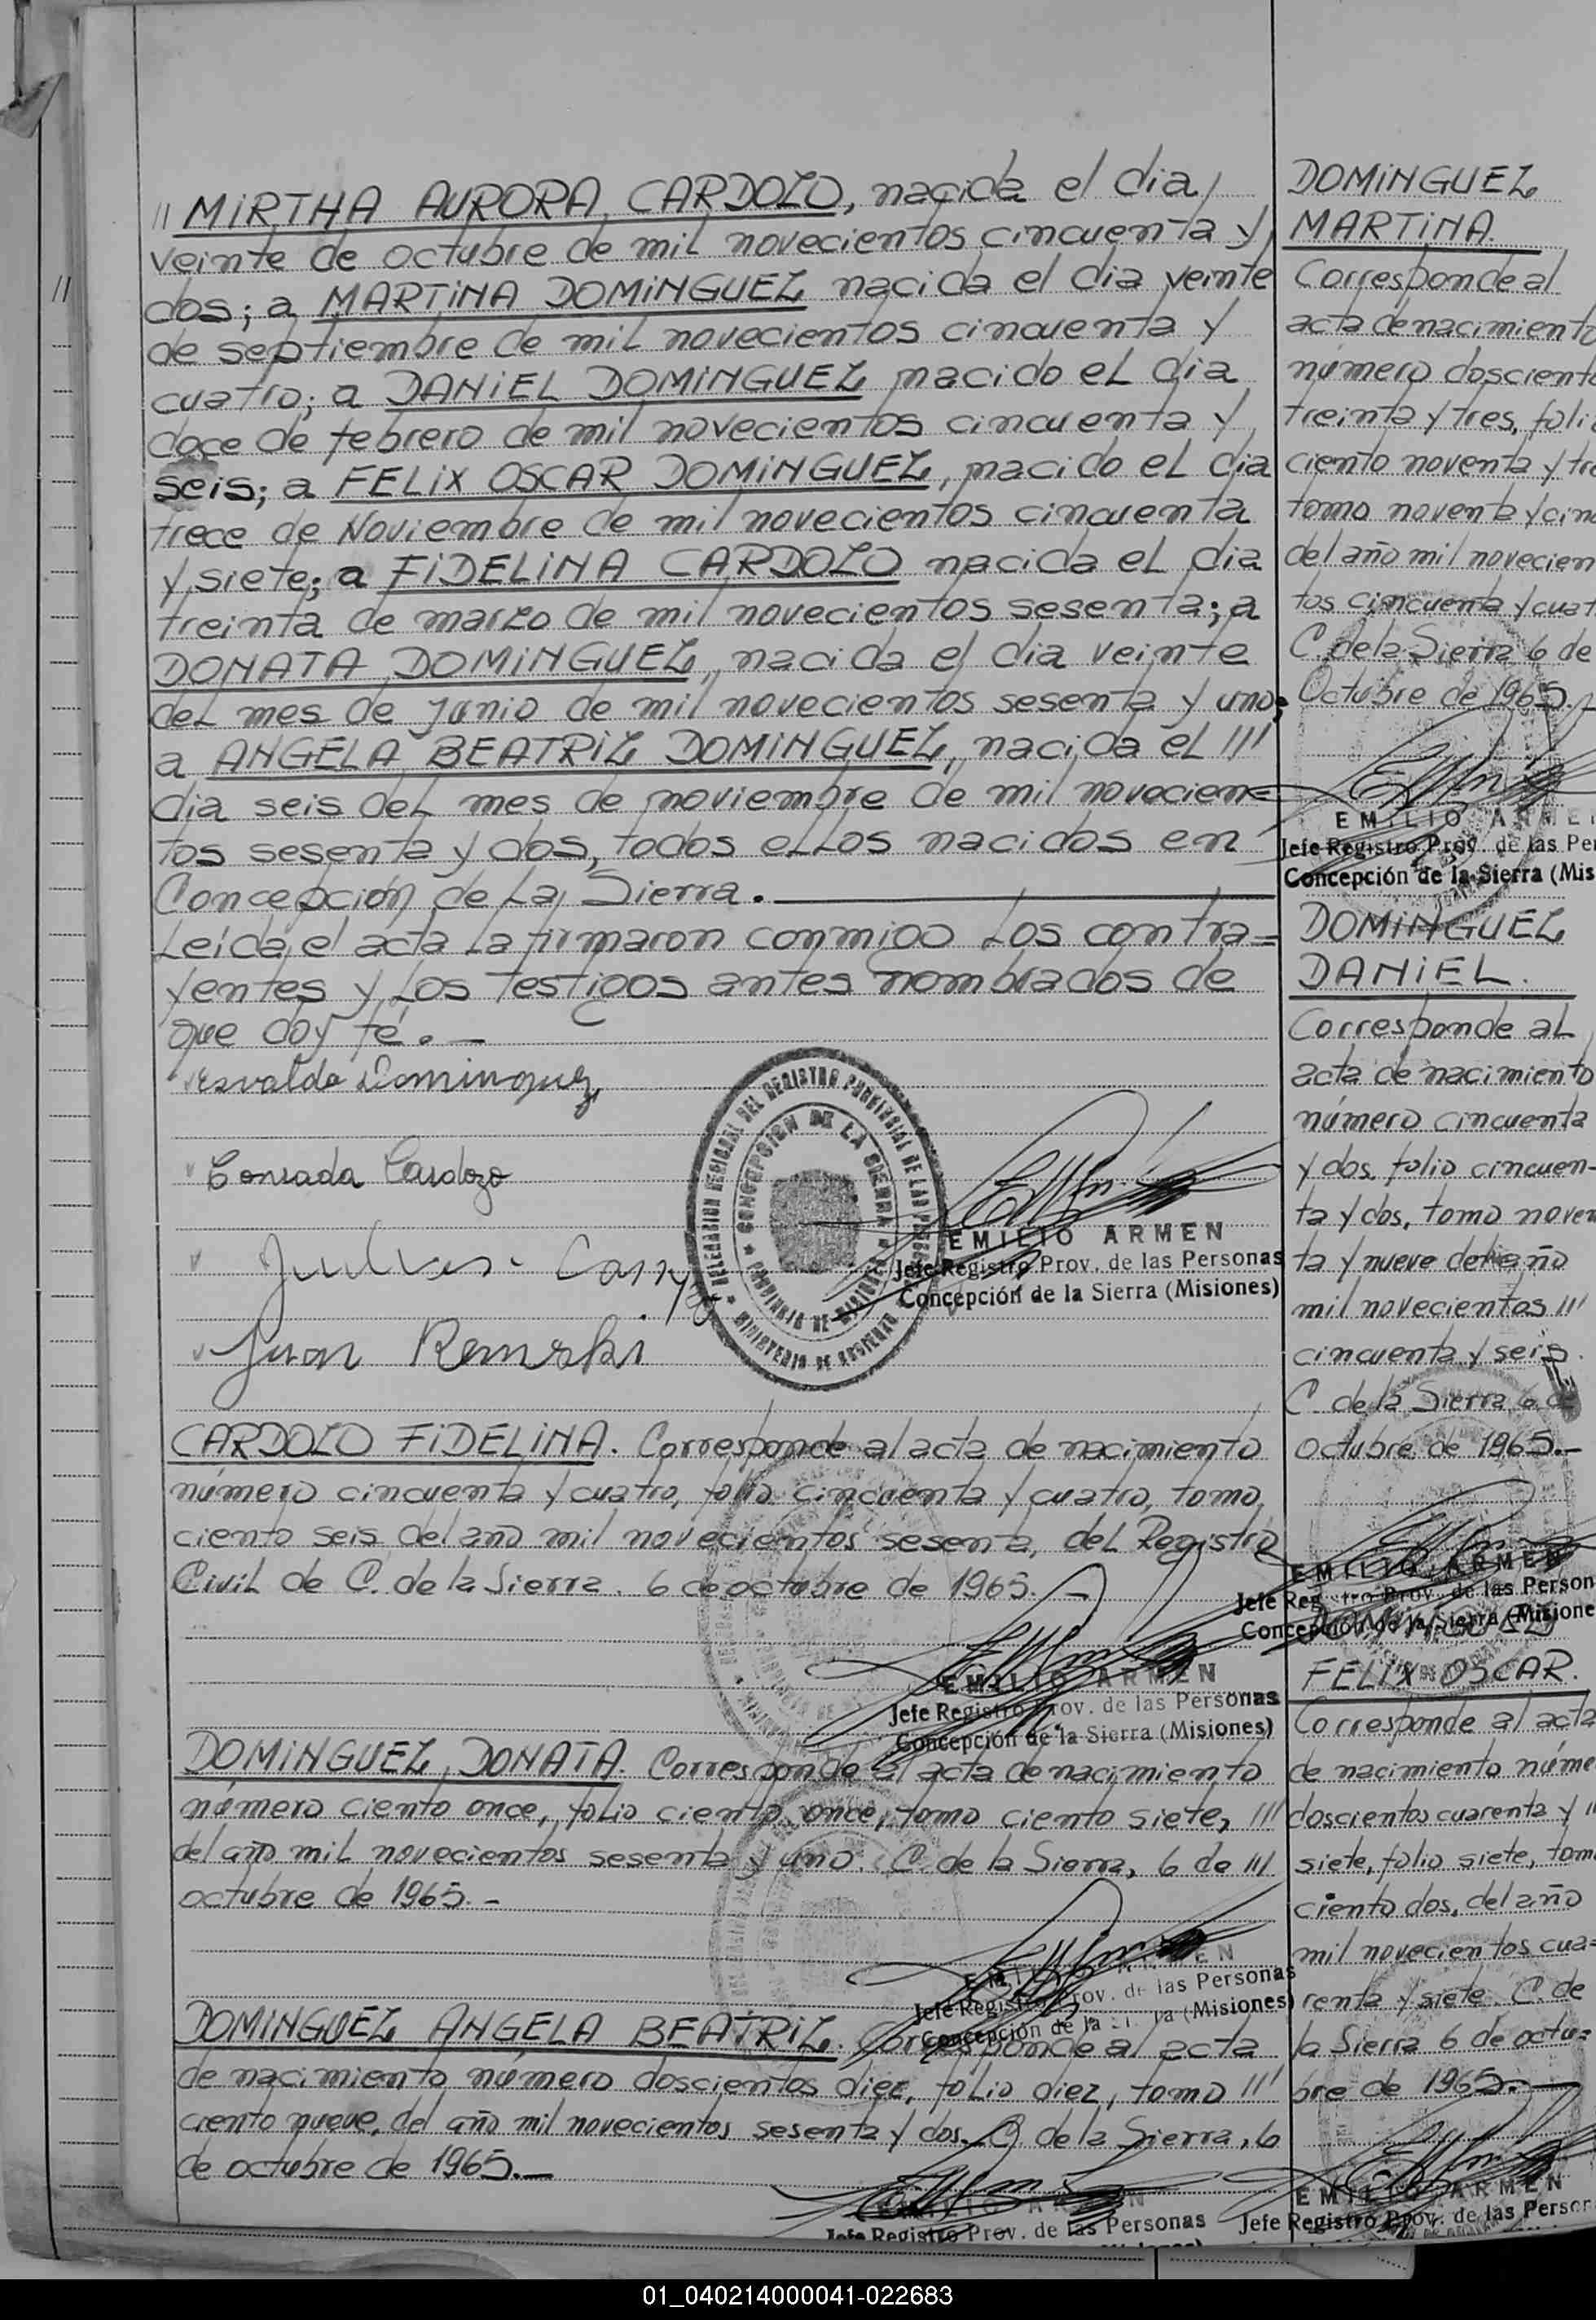 // MIRTHA AURORA CARDOZO, nacida el dia
veinte de octubre de mil novecientos cincuenta y
dos; a MARTINA DOMINGUEZ nacida el dia veinte
de septiembre de mil novecientos cincuenta y
cuatro; a DANIEL DOMINGUEZ nacido el dia
doce de febrero de mil novecientos cincuenta y
seis; a FELIX OSCAR DOMINGUEZ, nacido el dia
trece de Noviembre de mil novecientos cincuenta
y siete; a FIDELINA CARDOZO nacida el dia
treinta de marzo de mil novecientos sesenta; a
DONATA DOMINGUEZ, nacida el dia veinte
del mes de junio de mil novecientos sesenta y uno;
a ANGELA BEATRIZ DOMINGUEZ, nacida el ///
dia seis del mes de noviembre de mil novecien=
tos sesenta y dos, todos ellos nacidos en
Concepción de La Sierra.
Leida el acta la firmaron conmigo los contra=
yentes y los testigos antes nombrados de
que doy fé. —
Dominguez
Conrada Cardozo
Juan
DELEGACION REGIONAL DEL REGISTRO PROVINCIAL DE LAS
CONCEPCION DE LA SIERRA
PROVINCIA DE MISIONES
MINISTERIO DE GOBIERNO
EMILIO ARMEN
Jefe Registro Prov. de las Personas
Concepción de la Sierra (Misiones)
CARDOZO FIDELINA. Corresponde al acta de nacimiento
número cincuenta y cuatro, folio cincuenta y cuatro, tomo
ciento seis del año mil novecientos sesenta, del Registro
Civil de C. de la Sierra. 6 de octubre de 1965. —
EMILIO ARMEN
Jefe Registro Prov. de las Personas
Concepción de la Sierra (Misiones)
DOMINGUEZ DONATA. Corresponde al acta de nacimiento
número ciento once, folio ciento once, tomo ciento siete, ///
del año mil novecientos sesenta y uno. C. de la Sierra, 6 de ///
octubre de 1965. -
EMILIO ARMEN
Jefe Registro Prov. de las Personas
Concepción de la Sierra (Misiones)
DOMINGUEZ ANGELA BEATRIZ. Corresponde al acta
de nacimiento número doscientos diez, folio diez, tomo ///
ciento nueve, del año mil novecientos sesenta y dos. C. de la Sierra, 6
de octubre de 1965. —
EMILIO ARMEN
Jefe Registro Prov. de las Personas
DOMINGUEZ
MARTINA.
Corresponde al
acta de nacimiento
número doscient
treinta y tres, foli
ciento noventa y tr
tomo noventa y cin
del año mil novecien
tos cincuenta y cuat
C. de la Sierra 6 de
Octubre de 1965. -
EMILIO ARME
Jefe Registro Prov. de las Pe
Concepción de la Sierra (Mis
DOMINGUEZ
DANIEL.
Corresponde al
acta de nacimiento
número cincuenta
y dos, folio cincuen-
ta y dos, tomo noven
ta y nueve del año
mil novecientos ///
cincuenta y seis.
C. de la Sierra 6 de
octubre de 1965. -
EMILIO ARMEN
Jefe Registro Prov. de las Person
Concepción de la Sierra (Misione
DOMINGUEZ
FELIX OSCAR.
Corresponde al acta
de nacimiento núme
doscientos cuarenta y //
siete, folio siete, tom
ciento dos, del año
mil novecientos cua=
renta y siete. C. de
la Sierra 6 de octu=
bre de 1965. —
EMILIO ARMEN
Jefe Registro Prov. de las Person
01_040214000041-022683